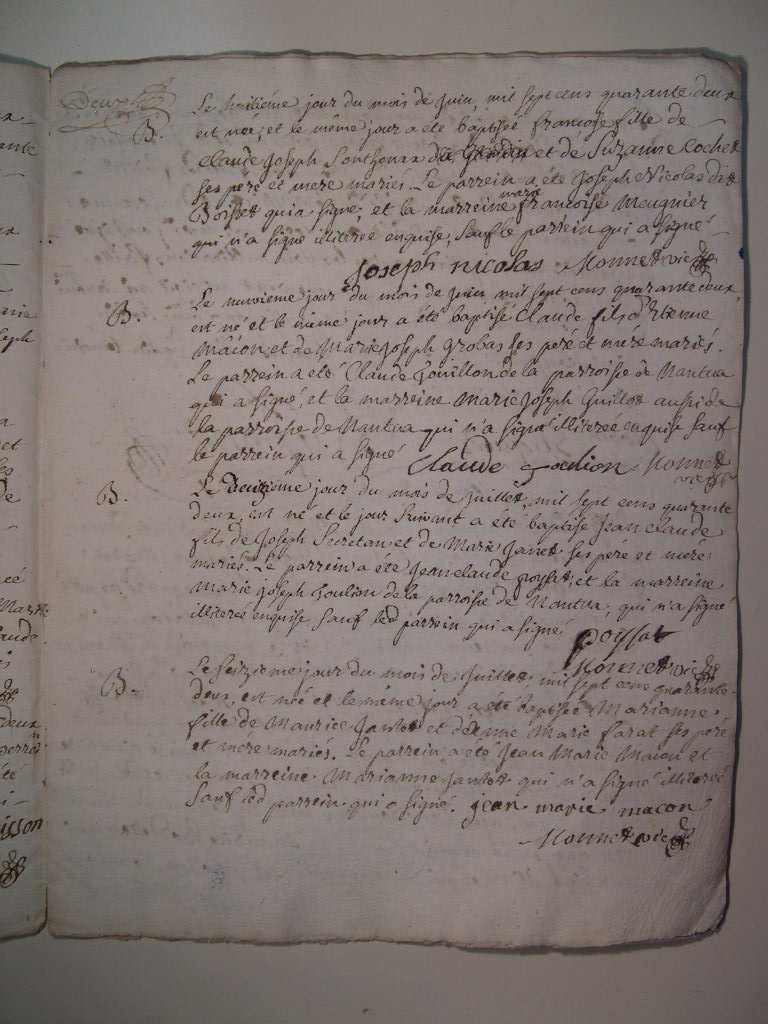 Deux
B.
Le huitiéme jour du mois de juin, mil sept cens quarante deux
est née, et le même jour a été baptisée francoise fille de
Claude Joseph Sonthonax et de Suzanne Cochet
ses peré et mere mariés. Le parrein a été Joseph Nicolas dit
Boisset qui a signé, et la marreine marie francoise Meugnier
qui n'a signé illiterée enquise, Sauf le parrein qui a signé
Joseph nicolas Monnet vic
B.
Le neuvieme jour du mois de juin mil sept cens quarante deux
est né et le même jour a été baptisé Claude fils d'Etienne
Mâcon, et de Marie Joseph Grobas ses peré et meré mariés.
Le parrein a été Claude Gouillon de la parroisse de Nantua
qui a signé, et la marreine Marie Joseph Guillot aussi de
la parroisse de Nantua qui n'a signé illiterée enquise sauf
le parrein qui a signé Claude Monnet
vic
B.
Le jour du mois de juillet, mil sept cens quarante
deux, est né et le jour suivant a été baptisé Jean Claude
fils de Joseph Secretan et de Marie Janet ses peré et mere
mariés. Le parrein a été Jean claude poysat, et la marreine
Marie Joseph Goulion de la parroisse de Nantua, qui n'a signé
illiterée enquise Sauf led parrein qui a signé
poysat
Monnet vic
B.
Le Seizieme jour du mois de Juillet, mil sept cens quarante
deux, est née et le même jour a été baptisée Marianne
fille de Maurice Jantet et d'Anne Marie farat ses peré
et mere mariés. Le parrein a été Jean Marie Macon et
la marreine Marianne Jantet qui n'a signé illiterée
Sauf led parrein qui a signé. jean marie macon
Monnet vic